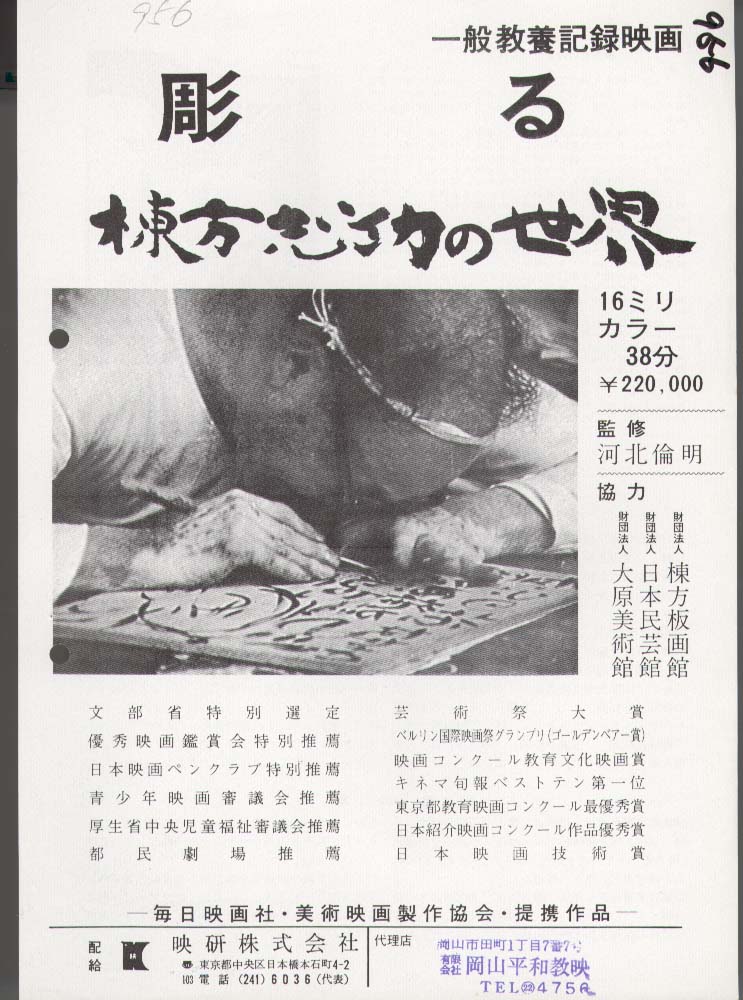 956
956
一般教養記録映画
彫る
棟方志功の世界
16ミリ
カラー
38分
￥220,000
監修
河北倫明
協力
財団法人 棟方板画館
財団法人 日本民芸館
財団法人 大原美術館
文部省特別選定
優秀映画鑑賞会特別推薦
日本映画ペンクラブ特別推薦
青少年映画審議会推薦
厚生省中央児童福祉審議会推薦
都民劇場推薦
芸術祭大賞
ベルリン国際映画祭グランプリ(ゴールデンベアー賞)
映画コンクール教育文化映画賞
キネマ旬報ベストテン第一位
東京都教育映画コンクール最優秀賞
日本紹介映画コンクール作品優秀賞
日本映画技術賞
―毎日映画社・美術映画製作協会・提携作品―
配給
映研株式会社
東京都中央区日本橋本石町4-2
103 電話 (241) 6036 (代表)
代理店
岡山市田町1丁目7番7号
有限会社 岡山平和教映
TEL㉒4756